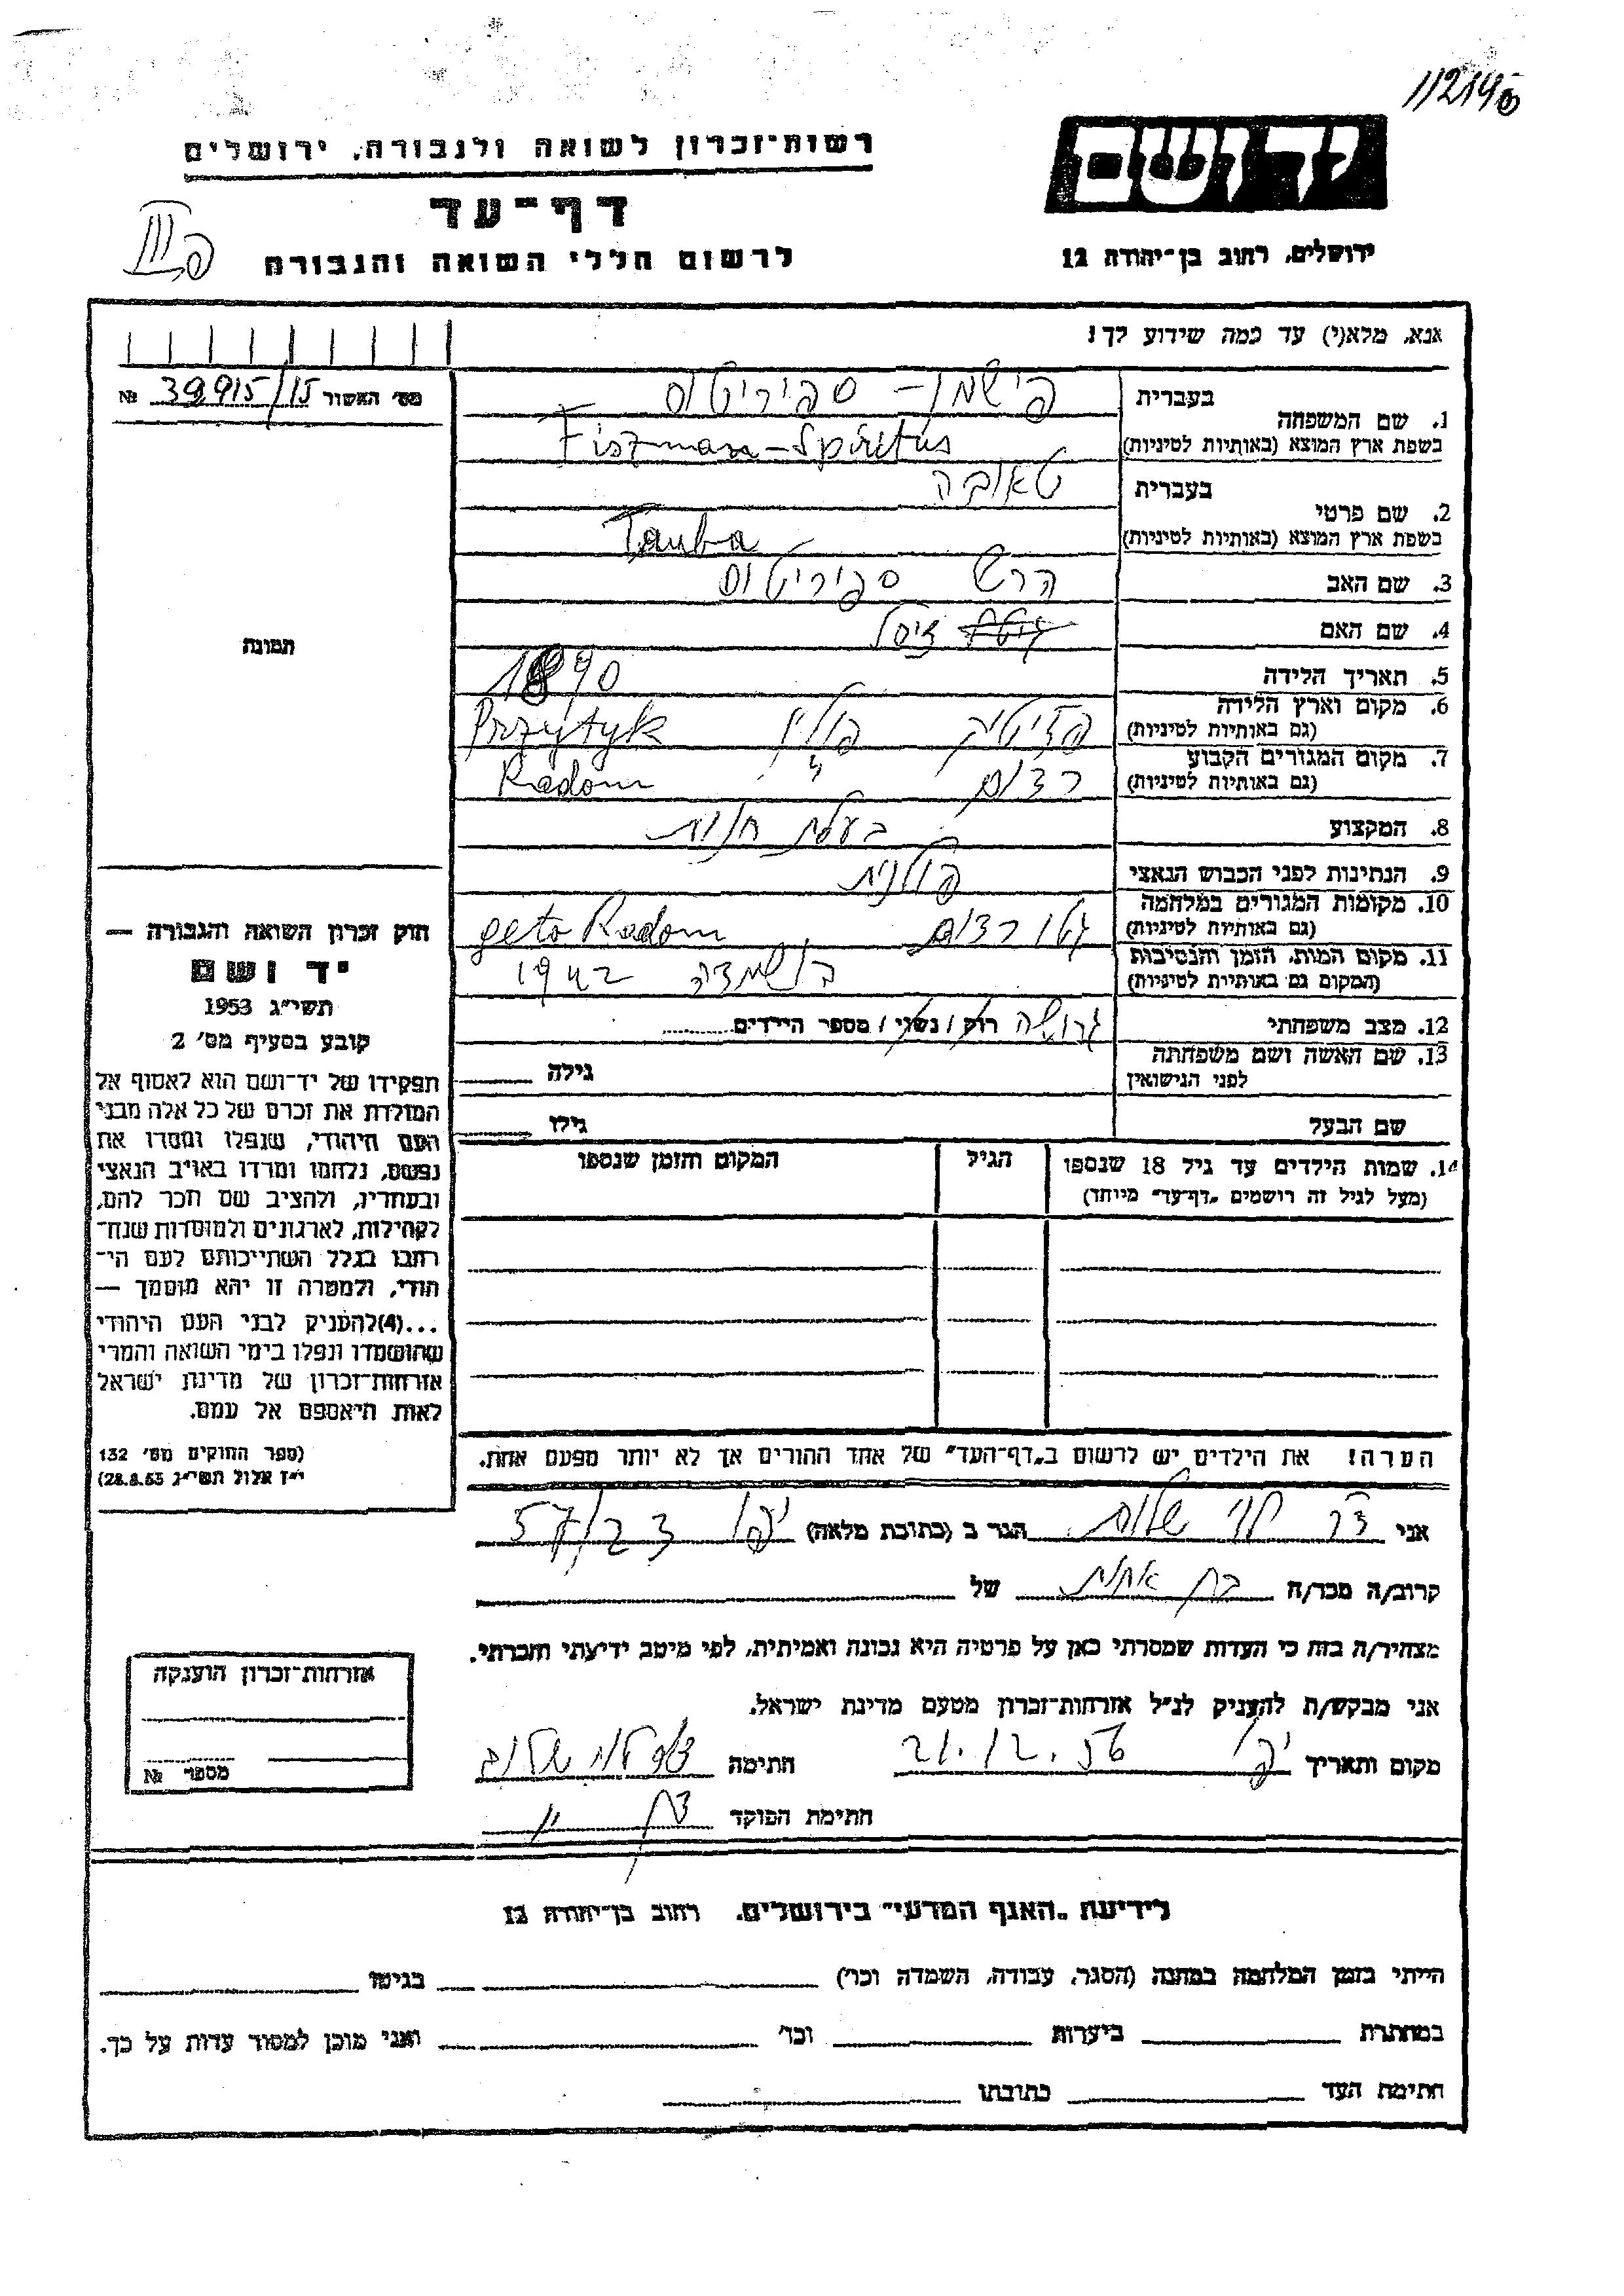 112145
יד ושם
רשות־זכרון לשואה ולגבורה, ירושלים
דף־עד
לרשום חללי השואה והגבורה
ירושלים, רחוב בן־יהודה 12
אנא, מלא(י) עד כמה שידוע לך!
מס׳ האשור 39915/15 №
1. שם המשפחה
בעברית פישמן - ספיריטוס
בשפת ארץ המוצא (באותיות לטיניות) Fiszman-Spiritus
2. שם פרטי
בעברית טאובה
בשפת ארץ המוצא (באותיות לטיניות) Tauba
3. שם האב הרש ספיריטוס
4. שם האם
5. תאריך הלידה 1890
6. מקום וארץ הלידה (גם באותיות לטיניות) פשיטיק פולין Przytyk
7. מקום המגורים הקבוע (גם באותיות לטיניות) רדום " Radom
8. המקצוע בעלת חנות
9. הנתינות לפני הכבוש הנאצי פולנית
10. מקומות המגורים במלחמה (גם באותיות לטיניות) גטו רדום geto Radom
11. מקום המות, הזמן והנסיבות (המקום גם באותיות לטיניות) בהשמדה 1942
12. מצב משפחתי גרושה רוק / נשוי / מספר הילדים
13. שם האשה ושם משפחתה לפני הנישואין
גילה
שם הבעל
גילו
14. שמות הילדים עד גיל 18 שנספו (מעל לגיל זה רושמים „דף־עד" מיוחד)
הגיל
המקום והזמן שנספו
הערה! את הילדים יש לרשום ב„דף־העד" של אחד ההורים אך לא יותר מפעם אחת.
תמונה
חוק זכרון השואה והגבורה —
יד ושם
תשי״ג 1953
קובע בסעיף מס׳ 2
תפקידו של יד־ושם הוא לאסוף אל
המולדת את זכרם של כל אלה מבני
העם היהודי, שנפלו ומסרו את
נפשם, נלחמו ומרדו באויב הנאצי
ובעוזריו, ולהציב שם וזכר להם,
לקהילות, לארגונים ולמוסדות שנח־
רבו בגלל השתייכותם לעם הי־
הודי, ולמטרה זו יהא מוסמך —
...(4)להעניק לבני העם היהודי
שהושמדו ונפלו בימי השואה והמרי
אזרחות־זכרון של מדינת ישראל
לאות היאספם אל עמם.
(ספר החוקים מס׳ 132
י״ז אלול תשי״ג 28.8.53)
אני שלום הגר ב (כתובת מלאה) יפו 57/23
קרוב/ה מכר/ה בת אחות של
מצהיר/ה בזה כי העדות שמסרתי כאן על פרטיה היא נכונה ואמיתית, לפי מיטב ידיעתי והכרתי.
אני מבקש/ת להעניק לנ״ל אזרחות־זכרון מטעם מדינת ישראל.
מקום ותאריך יפו 21.12.56 חתימה
חתימת הפוקד
אזרחות־זכרון הוענקה
מספר №
לידיעת „האגף המדעי" בירושלים. רחוב בן־יהודה 12
הייתי בזמן המלחמה במחנה (הסגר, עבודה, השמדה וכו׳) בגיטו
במחתרת ביערות וכו׳ ואני מוכן למסור עדות על כך.
חתימת העד כתובתו